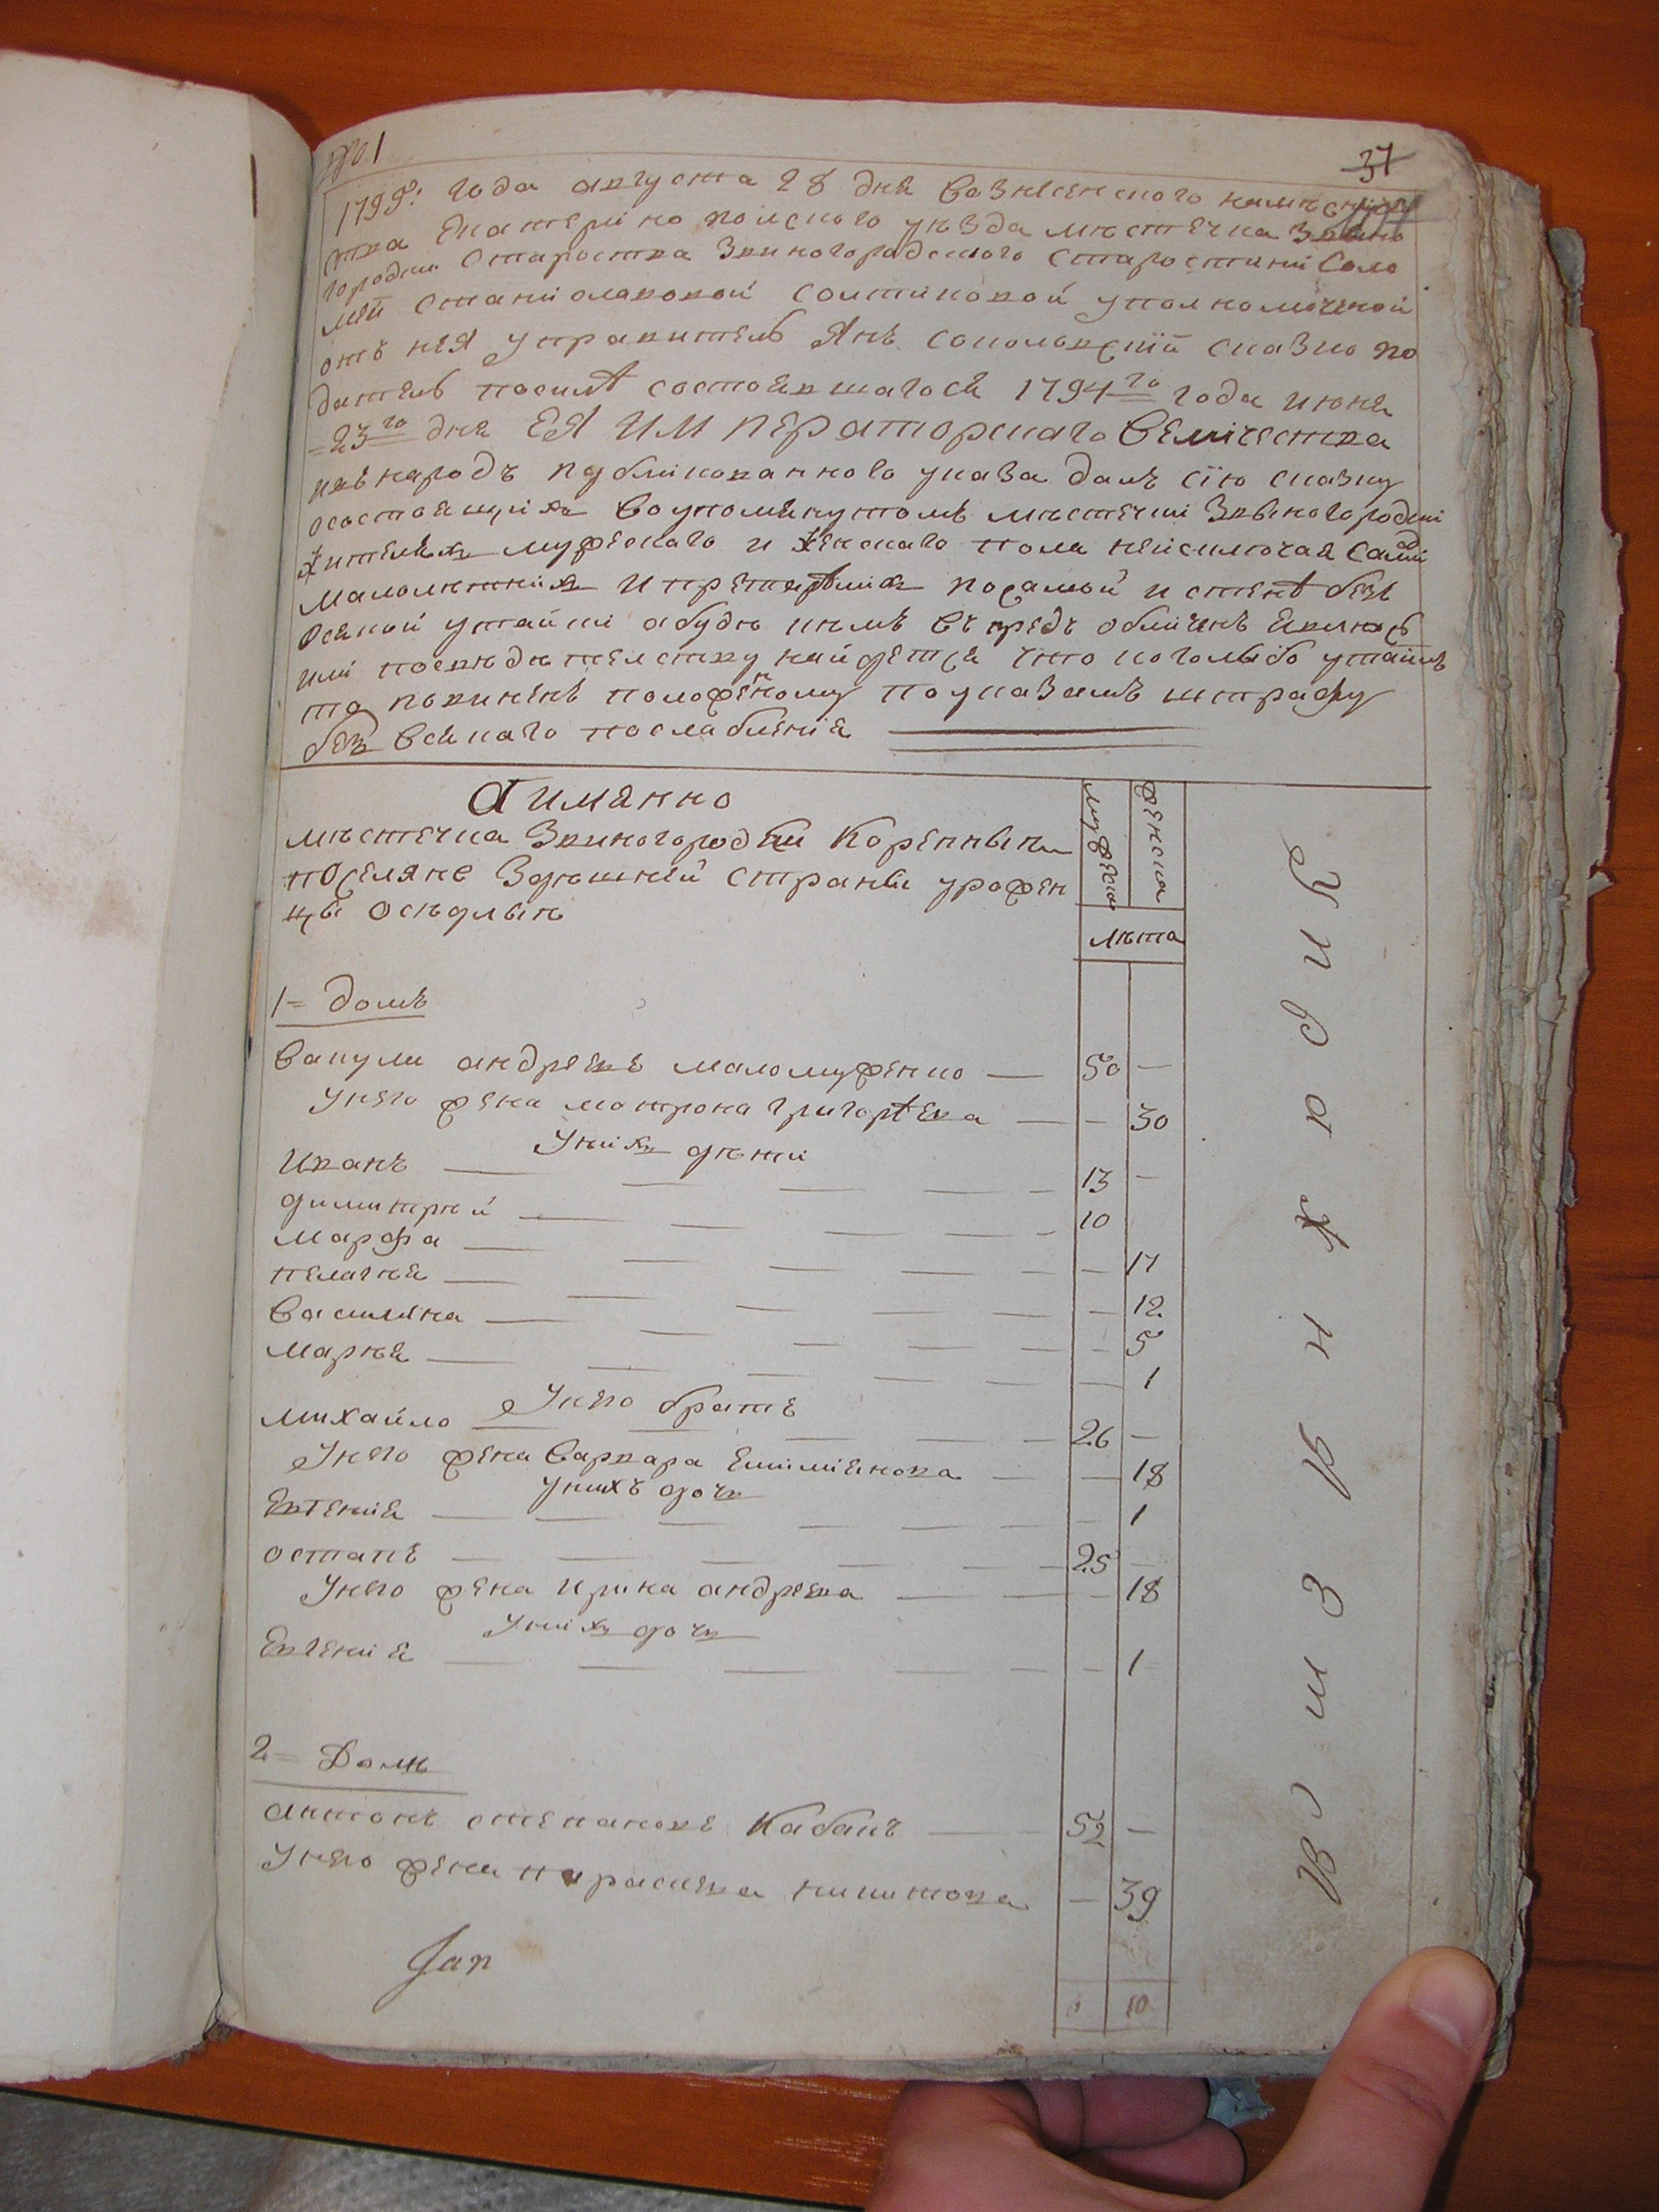 № 1
37
1795: года августа 28 дня вознесенского намѣсни
тва Екатеринопольского уѣзда мѣстечка Звино
городки Староства Звиногородского старостини Соло
меи Станиславовой Солтиковой уполномоченой
отъ нея управитель Янъ Сопольвский сказко по
датель посилѣ состоявшагося 1794го года июня
23го дня ЕЯ ИМПЕРаторскаго Величества
въ народъ публикованного указа далъ сїю сказку
осостоящихъ воупомянутомъ мѣстечки Звиногородки
жителяхъ мужескаго и женскаго пола неисключая самих
малолѣтнихъ и престарѣлихъ посамой истенѣ безъ
всякой утайки абуде кѣмъ въпредь обличенъ явлюсь
или посвидѣтелству найдется что коголибо утаилъ
то повиненъ положеному поуказамъ штрафу
безъ всякаго послабления
А имянно
мѣстечка Звиногородки Коренныи
поселяне Здѣшней страны урожен
цы осѣдлыи
мужеска
женска
лѣта
1 = домъ
Вакули андреевъ маломуженко — 50 —
Унего жена мотрона григорѣева — — 30
Унихъ дѣти
Иванъ — 13 —
димитрѣй — 10
Марфа — — 17
пелагѣя — — 12
Василина — — 5
Марѣя — — 1
Унего братъ
михайло — 26 —
Унего жена Варвара Емилиянова — — 18
Унихъ дочь
Евгения — — 1
остапъ — 25 —
Унего жена Ирина андреева — — 18
Унихъ дочь
Евгения — — 1
2 = Домъ
антонъ степановъ Кабанъ — 52 —
Унего жена параскева никитова — 39
Jan
10